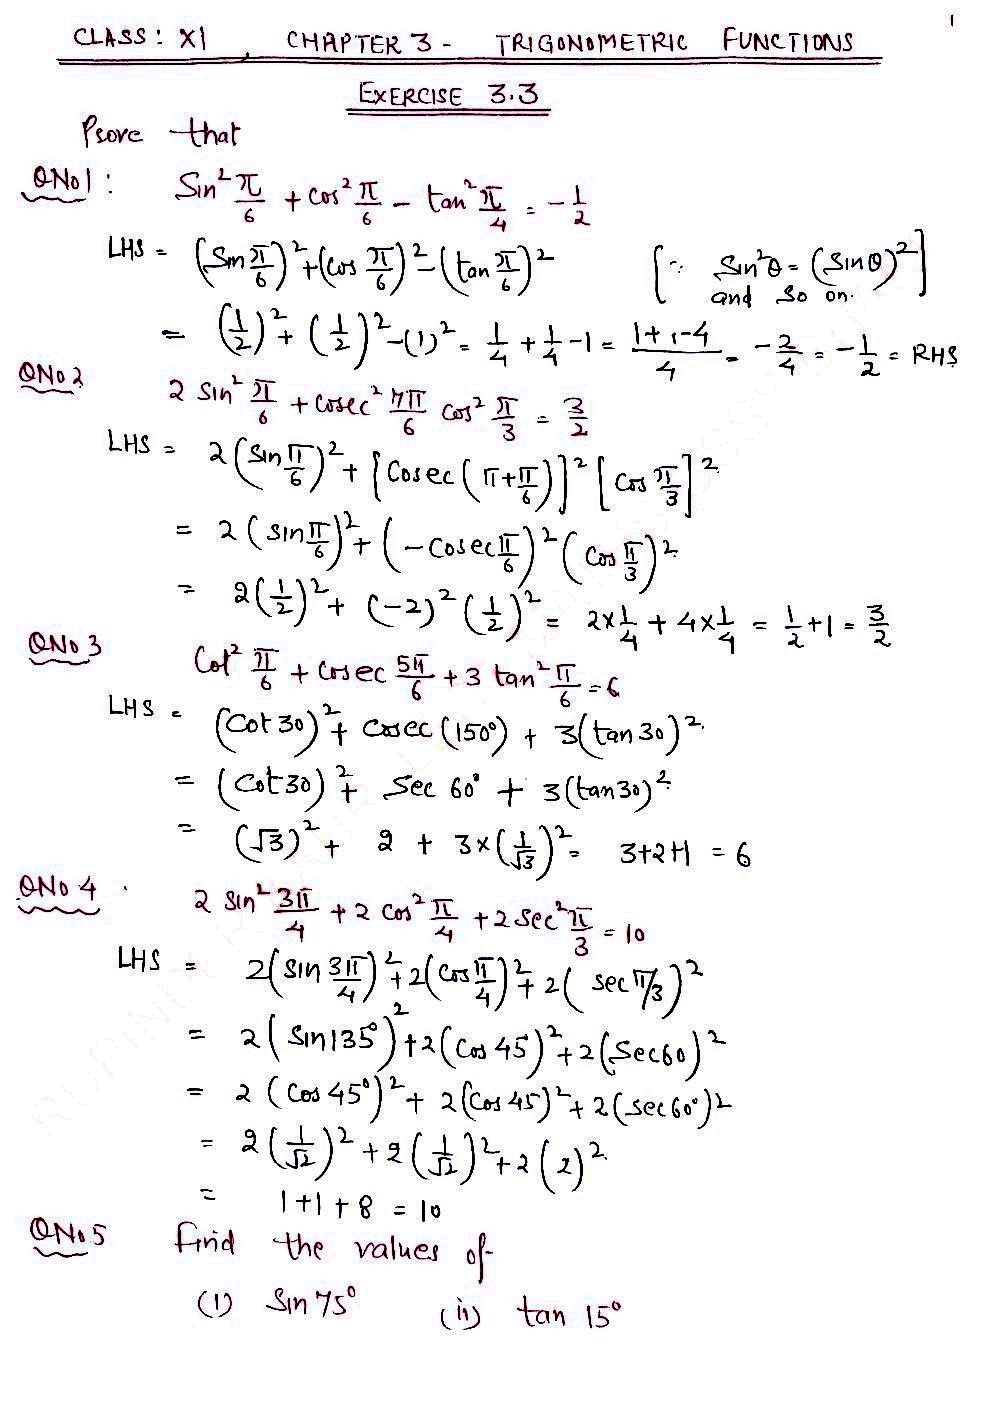 1
CLASS: XI , CHAPTER 3 - TRIGONOMETRIC FUNCTIONS
EXERCISE 3.3
Prove that
QNo1: Sin² π/6 + cos² π/6 - tan² π/4 = -1/2
LHS = (Sin π/6)² + (cos π/6)² - (tan π/6)² [∵ Sin²θ = (Sinθ)²]
and so on.
= (1/2)² + (1/2)² - (1)² = 1/4 + 1/4 - 1 = (1+1-4)/4 = -2/4 = -1/2 = RHS
QNo2 2 sin² π/6 + cosec² 7π/6 cos² π/3 = 3/2
LHS = 2(sin π/6)² + [Cosec(π+π/6)]² [cos π/3]²
= 2(sin π/6)² + (-cosec π/6)² (cos π/3)²
= 2(1/2)² + (-2)² (1/2)² = 2×1/4 + 4×1/4 = 1/2 + 1 = 3/2
QNo3 Cot² π/6 + cosec 5π/6 + 3 tan² π/6 = 6
LHS = (Cot 30)² + cosec (150°) + 3(tan 30)²
= (Cot 30)² + sec 60° + 3(tan 30)²
= (√3)² + 2 + 3×(1/√3)² = 3+2+1 = 6
QNo 4 . 2 sin² 3π/4 + 2 cos² π/4 + 2 sec² π/3 = 10
LHS = 2(sin 3π/4)² + 2(cos π/4)² + 2(sec π/3)²
= 2(sin 135°)² + 2(cos 45)² + 2(sec 60)²
= 2(cos 45°)² + 2(cos 45)² + 2(sec 60°)²
= 2(1/√2)² + 2(1/√2)² + 2(2)²
= 1+1+8 = 10
QNo5 find the values of
(i) Sin 75° (ii) tan 15°